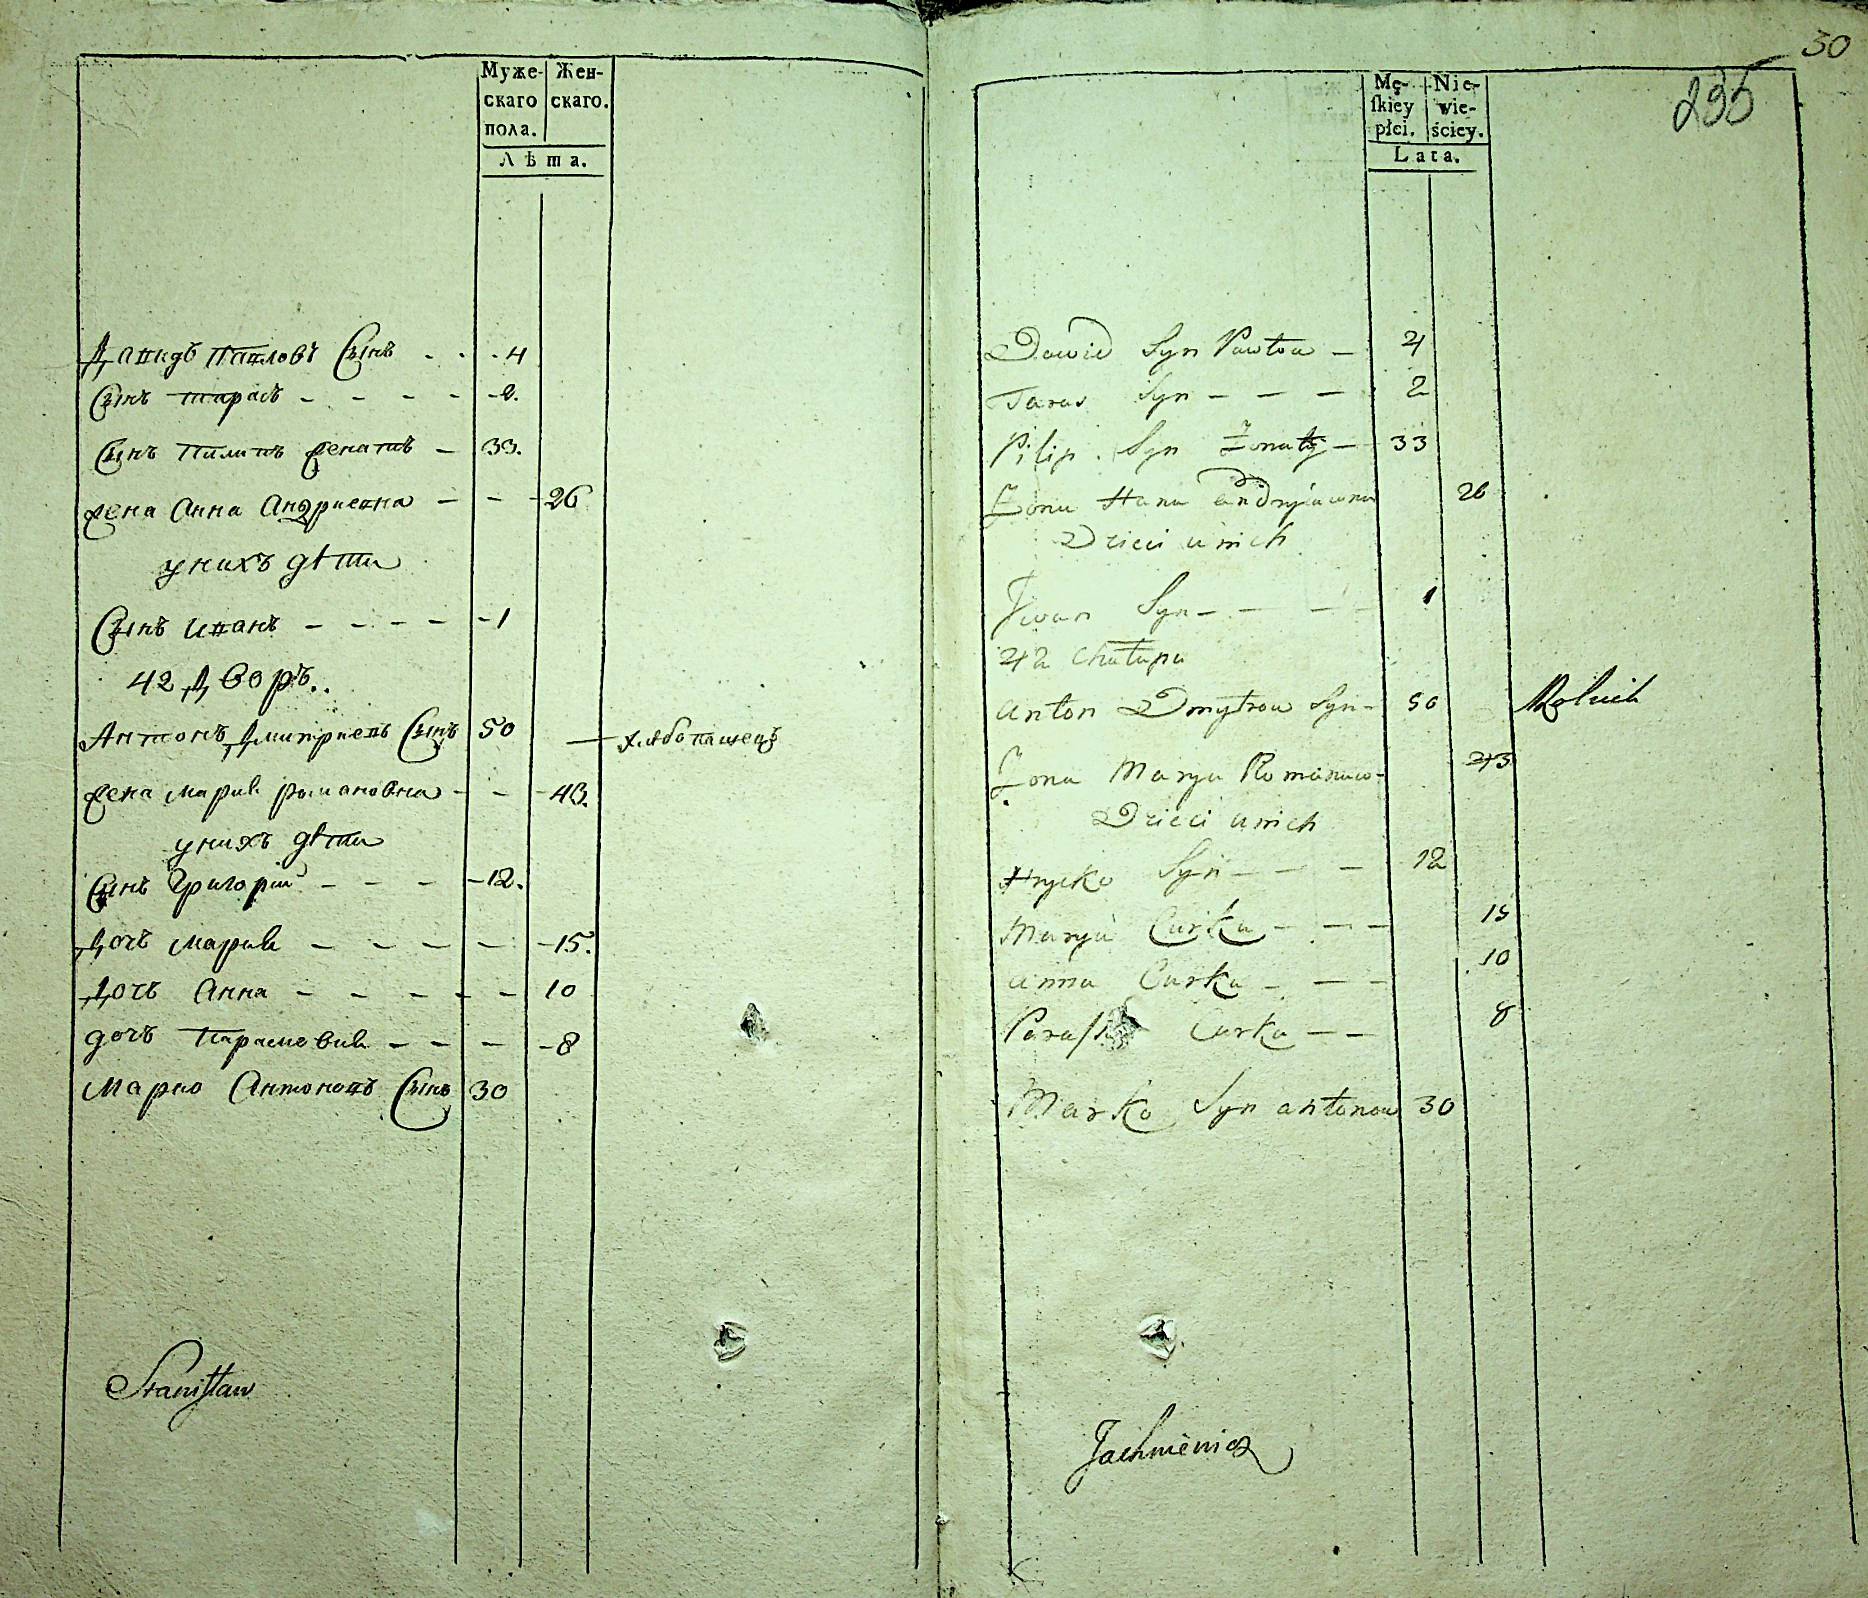 Муже-
скаго
пола.
Жен-
скаго.
Лѣта.
Давидъ Павловъ Сынъ - - - 4
Сынъ тарасъ - - - - - 2.
Сынъ пилипъ женатъ - 33.
жена Анна Андриевна - - - 26
у нихъ дѣти
Сынъ иванъ - - - - - 1
42 Дворъ.
Антонъ Дмитриевъ Сынъ 50 — хлѣбопашецъ
жена мария романовна - - - 43.
у нихъ дѣти
Сынъ Григорій - - - - 12.
Дочъ мария - - - - - 15.
Дочъ Анна - - - - - 10
дочъ Парасковия - - - - 8
Марко Антоновъ Сынъ 30
Stanisław
30
235
Mę-
ſkiey
płci.
Nie-
wie-
ściey.
Lata.
Dawid Syn Pawłow - 4
Taras Syn - - - 2
Pilip Syn Żonaty - 33
Żona Hana andryiawna 26
Dzieci u nich
Jwan Syn - - - - 1
42 Chałupa
anton Dmytrow Syn - 50 Rolnik
Żona Marya Romanow- 43
Dzieci u nich
Hryćko Syn - - - 12
Marya Curka - - - 15
anna Curka - - - 10
Curka - - 8
Marko Syn antonow 30
Jachniewicz